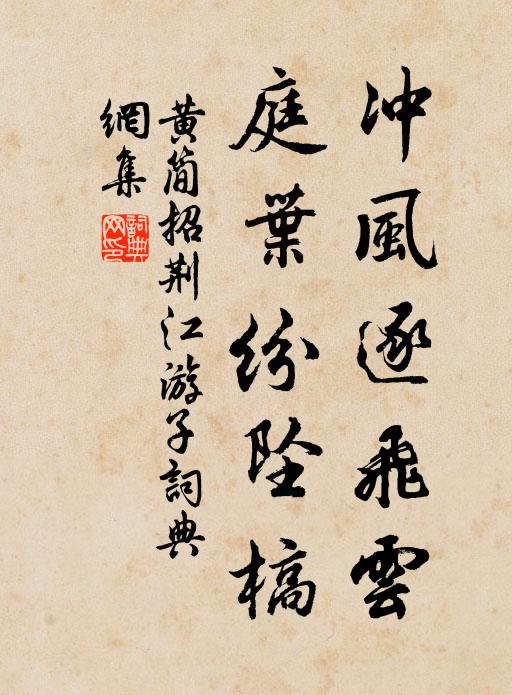 冲風逐飛雲
庭葉紛墜槁
黄簡招荆江游子詞典
網集
詞典
网印